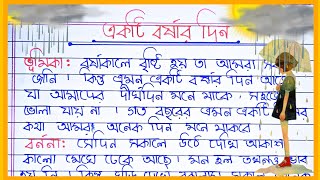 একটি বর্ষার দিন
ভূমিকা: বর্ষাকালে বৃষ্টি হয় তা আমরা
জানি। কিন্তু এমন একটি বর্ষার দিন
যা আমাদের দীর্ঘদিন মনে থাকে। সহজে
ভোলা যায় না। গত বছরের এমন একটি
কথা আমরা অনেক দিন মনে থাকবে।
বর্ননা: সেদিন সকালে উঠে দেখি আকাশ
কালো মেঘে ঢেকে আছে। মনে হল